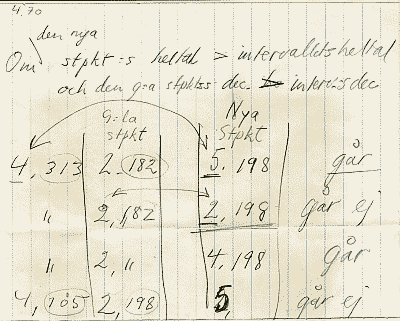 4.70
den nya
Om stpkt:s heltal > intervallets heltal
och den g:a stpktss dec. intervs dec
G:la stpkt
Nya Stpkt
4,313 2.182 5.198 går
" 2,182 2,198 går ej
" 2," 4,198 går
4,105 2,198 5, går ej